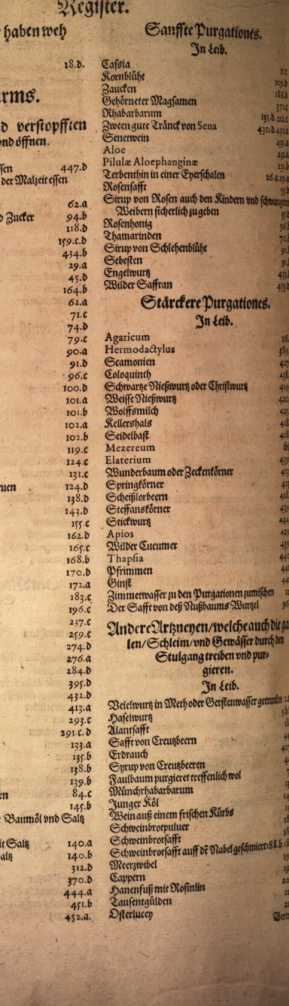 Register.
haben weh
18.d.
arms.
d verstopfften
vnd öffnen.
ssen 447.d
der Malzeit essen
62.a
d Zucker 94.b
118.d
159.c.d
434.b
29.a
45.d
164.b
62.a
71.c
74.d
79.c
90.a
91.d
96.c
100.d
101.a
101.b
102.a
102.b
119.c
124.c
131.c
124.d
138.d
143.d
155.c
162.d
165.c
168.b
170.d
172.a
183.c
196.c
237.c
259.c
274.d
276.a
284.d
395.d
432.d
413.a
293.c
291.c.d
133.a
135.b
138.b
139.b
84.c
145.b
Baumöl vnd Saltz
it Saltz 140.a
altz 140.b
312.d
370.d
444.a
451.b
452.a.
Sanffte Purgationes.
In Leib.
Cassia
Kornblühe
Zaucken
Gehörneter Magsamen
Rhabarbarum
Zween gute Tränck von Sena
Senetwein
Aloe
Pilulæ Aloephanginæ
Terbenthin in einer Eyerschalen
Rosensafft
Sirup von Rosen auch den Kindern vnd schwangern
Weibern sicherlich zugeben
Rosenhonig
Thamarinden
Sirup von Schlehenblühe
Sebesten
Engelwurtz
Wilder Saffran
Stärckere Purgationes.
In Leib.
Agaricum
Hermodactylus
Scamonien
Coloquinth
Schwartze Nießwurtz oder Christwurtz
Weisse Nießwurtz
Wolffsmilch
Kellershals
Seidelbast
Mezereum
Elaterium
Wunderbaum oder Zeckenkörner
Springkörner
Scheißlorbeern
Steffanskörner
Stickwurtz
Apios
Wilder Cucumer
Thapsia
Pfrimmen
Ginst
Zimmetwasser zu den Purgationen zumischen
Der Safft von deß Nußbaums Wurtzel
Andere Artzneyen/welche auch die
len/Schleim/vnd Gewässer durch den
Stulgang treiben vnd pur-
gieren.
In Leib.
Veielwurtz in Meth oder Gerstenwasser
Haselwurtz
Alantsafft
Safft von Creutzbeern
Erdrauch
Syrup von Creutzbeeren
Faulbaum purgieret treffenlich wol
Münchrhabarbarum
Junger Köl
Wein auß einem frischen Kürbs
Schweinbrotpuluer
Schweinbrotsafft
Schweinbrotsafft auff dē Nabel geschmiert
Meerzwibel
Cappern
Hanenfuß mit Rosinlin
Tausentgülden
Osterlucey